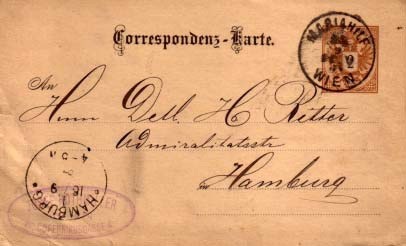 Correspondenz-Karte.
MARIAHILF
WIEN
2
An
Herrn Dell. H Ritter
Admiralitätsstr
in Hamburg
HAMBURG